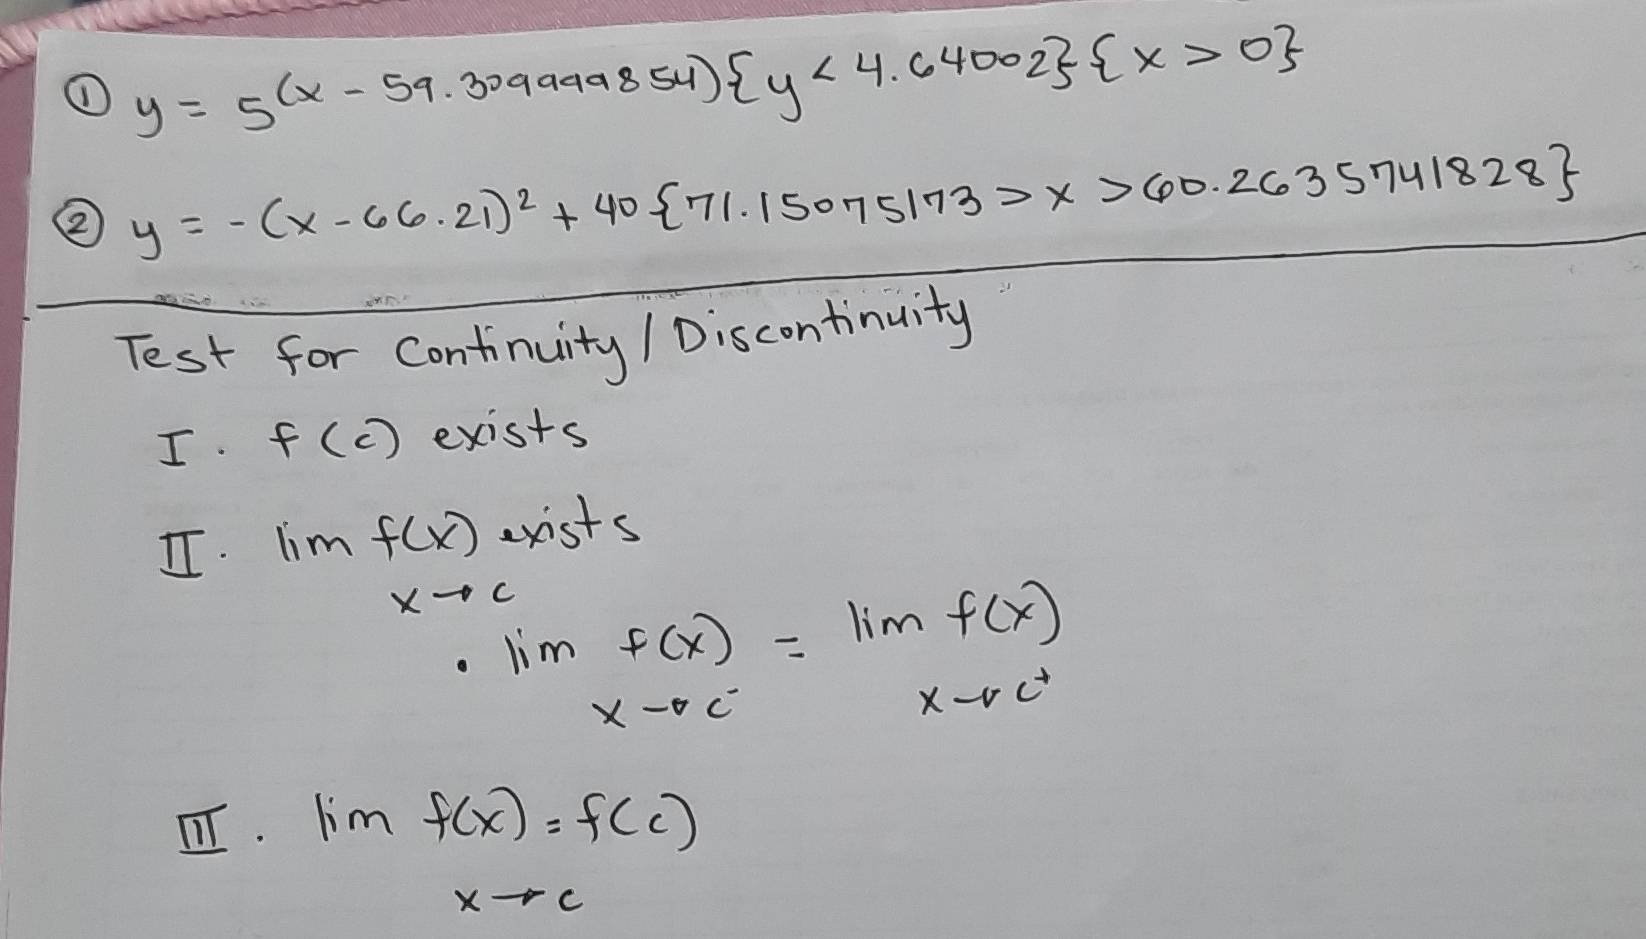 ① y = 5^(x - 59.309999854) {y < 4.64002} {x > 0}
② y = -(x - 66.21)² + 40 {71.15075173 > x > 60.2635741828}
Test for Continuity / Discontinuity
I. f(c) exists
II. lim f(x) exists
x→c
• lim f(x) = lim f(x)
x→c⁻ x→c⁺
III. lim f(x) = f(c)
x→c